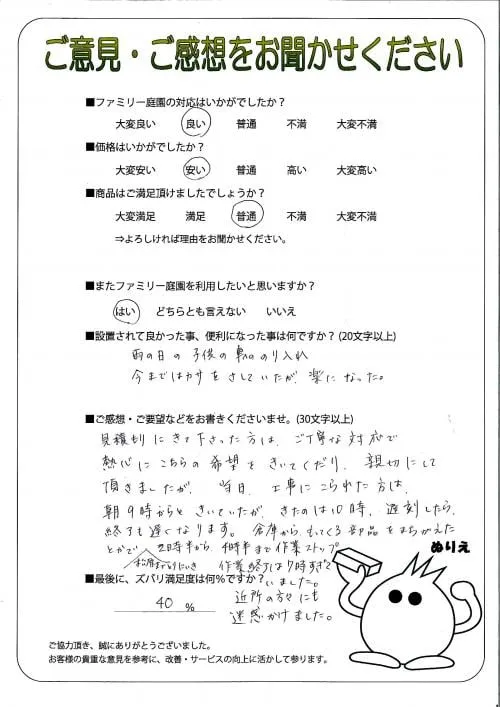 ご意見・ご感想をお聞かせください
■ファミリー庭園の対応はいかがでしたか？
大変良い 良い 普通 不満 大変不満
■価格はいかがでしたか？
大変安い 安い 普通 高い 大変高い
■商品はご満足頂けましたでしょうか？
大変満足 満足 普通 不満 大変不満
⇒よろしければ理由をお聞かせください。
■またファミリー庭園を利用したいと思いますか？
はい どちらとも言えない いいえ
■設置されて良かった事、便利になった事は何ですか？(20文字以上)
雨の日の子供の車ののり入れ
今まではカサをさしていたが、楽になった。
■ご感想・ご要望などをお書きくださいませ。(30文字以上)
見積りにきて下さった方は、ご丁寧な対応で
熱心にこちらの希望をきいてくだり、親切にして
頂きましたが、当日、工事にこられた方は、
朝9時からときいていたが、きたのは10時、遅刻したら、
終了も遅くなります。倉庫からもってくる部品をまちがえた
とかで、2時半から、4時半まで作業ストップ
作業終了は7時すぎて
いました。
近所の方々にも
迷惑かけました。
ぬりえ
■最後に、ズバリ満足度は何％ですか？
40 %
ご協力頂き、誠にありがとうございました。
お客様の貴重な意見を参考に、改善・サービスの向上に活かして参ります。